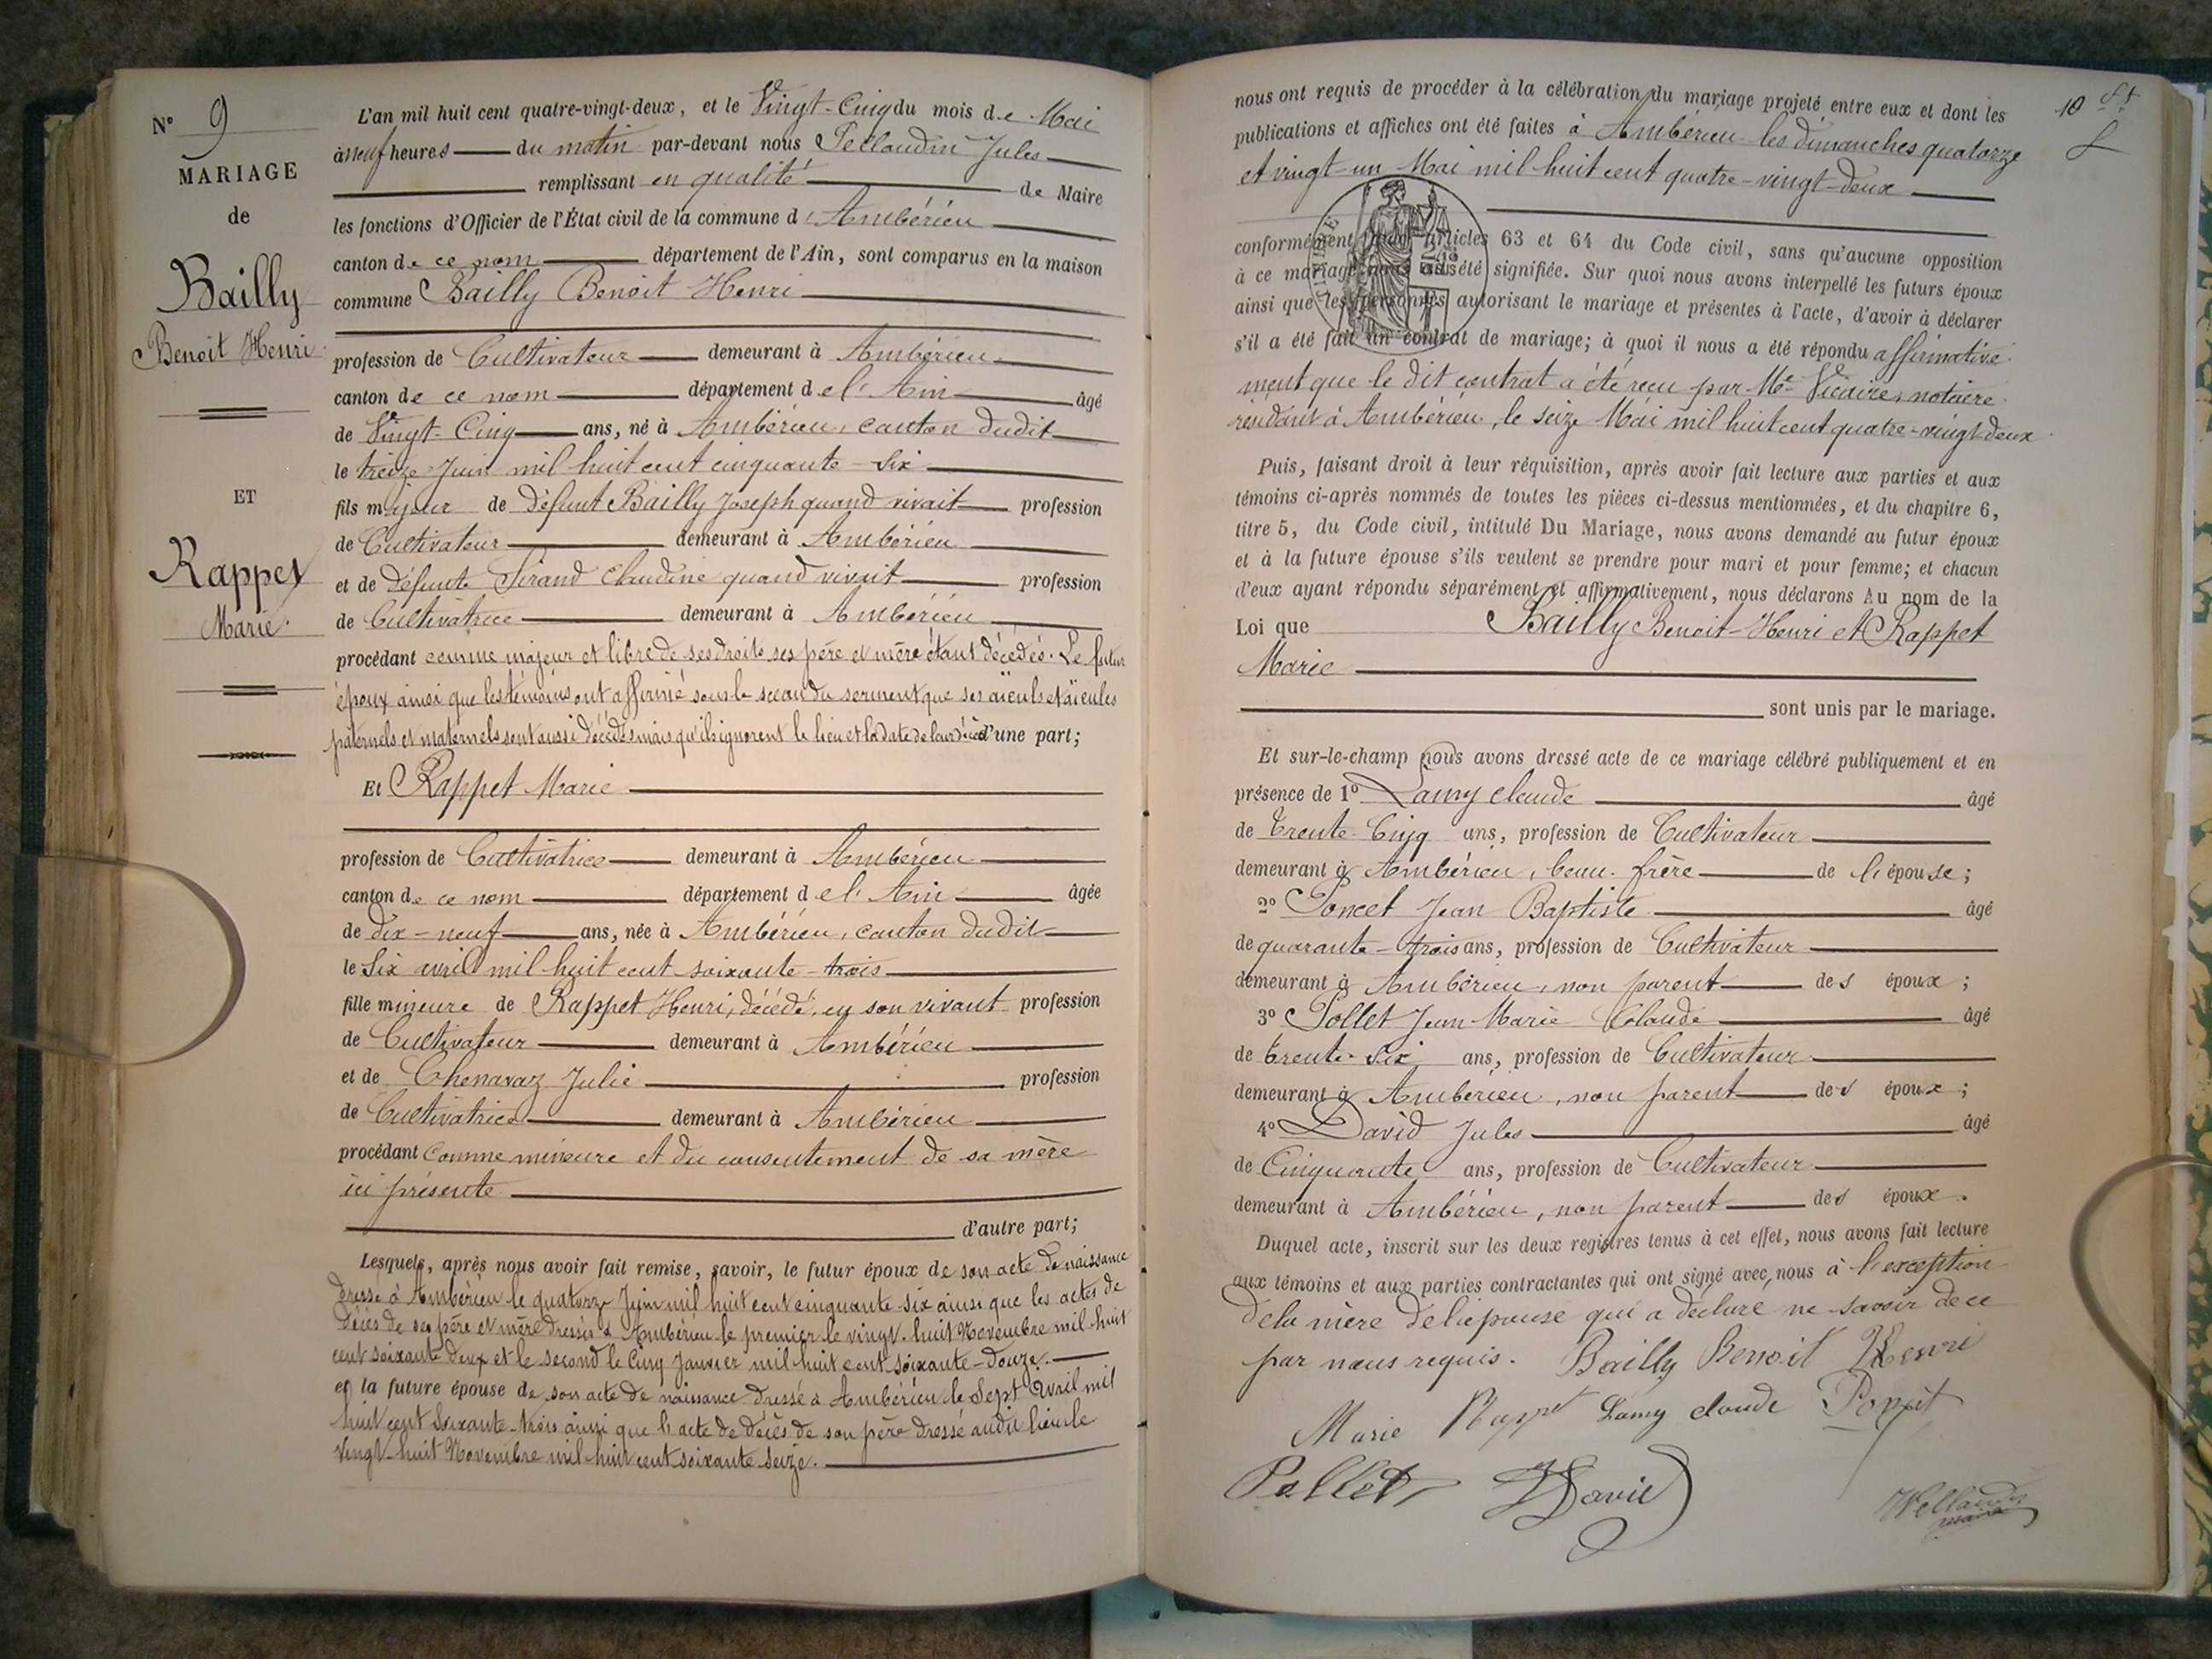 N° 9
MARIAGE
de
Bailly
Benoit Henri
ET
Rappet
Marie.
L'an mil huit cent quatre-vingt-deux, et le Vingt-Cinq du mois de Mai
à neuf heures du matin par-devant nous Pellaudin Jules
remplissant en qualité de Maire
les fonctions d'Officier de l'État civil de la commune d'Ambérieu
canton de ce nom département de l'Ain, sont comparus en la maison
commune Bailly Benoit Henri
profession de Cultivateur demeurant à Ambérieu
canton de ce nom département de l'Ain âgé
de Vingt-Cinq ans, né à Ambérieu, canton dudit
le treize Juin mil huit cent cinquante-six
fils majeur de défunt Bailly Joseph quand vivait profession
de Cultivateur demeurant à Ambérieu
et de défunte Sirand Claudine quand vivait profession
de Cultivatrice demeurant à Ambérieu
procédant comme majeur et libre de ses droits ses père et mère étant décédés. Le futur
époux ainsi que les témoins ont affirmé sous le sceau du serment que ses aïeuls et aïeules
paternels et maternels sont aussi décédés mais qu'ils ignorent le lieu et la date de leur décès d'une part;
Et Rappet Marie
profession de Cultivatrice demeurant à Ambérieu
canton de ce nom département de l'Ain âgée
de dix-neuf ans, née à Ambérieu, canton dudit
le Six avril mil huit cent soixante-trois
fille mineure de Rappet Henri, décédé, en son vivant profession
de Cultivateur demeurant à Ambérieu
et de Chenavaz Julie profession
de Cultivatrice demeurant à Ambérieu
procédant comme mineure et du consentement de sa mère
ici présente
d'autre part;
Lesquels, après nous avoir fait remise, savoir, le futur époux de son acte de naissance
dressé à Ambérieu le quatorze Juin mil huit cent cinquante-six ainsi que les actes de
décès de ses père et mère dressés à Ambérieu le premier le vingt-huit Novembre mil huit
cent soixante deux et le second le Cinq Janvier mil huit cent soixante-douze.
et la future épouse de son acte de naissance dressé à Ambérieu le Sept Avril mil
huit cent soixante-trois ainsi que l'acte de décès de son père dressé audit lieu le
vingt-huit Novembre mil huit cent soixante seize.
10
nous ont requis de procéder à la célébration du mariage projeté entre eux et dont les
publications et affiches ont été faites à Ambérieu les dimanches quatorze
et vingt-un Mai mil huit cent quatre-vingt-deux
conformément aux articles 63 et 64 du Code civil, sans qu'aucune opposition
à ce mariage nous ait été signifiée. Sur quoi nous avons interpellé les futurs époux
ainsi que les personnes autorisant le mariage et présentes à l'acte, d'avoir à déclarer
s'il a été fait un contrat de mariage; à quoi il nous a été répondu affirmative-
ment que le dit contrat a été reçu par Me Vicaire, notaire
résidant à Ambérieu, le seize Mai mil huit cent quatre-vingt-deux.
Puis, faisant droit à leur réquisition, après avoir fait lecture aux parties et aux
témoins ci-après nommés de toutes les pièces ci-dessus mentionnées, et du chapitre 6,
titre 5, du Code civil, intitulé Du Mariage, nous avons demandé au futur époux
et à la future épouse s'ils veulent se prendre pour mari et pour femme; et chacun
d'eux ayant répondu séparément et affirmativement, nous déclarons Au nom de la
Loi que Bailly Benoit-Henri et Rappet
Marie
sont unis par le mariage.
Et sur-le-champ nous avons dressé acte de ce mariage célébré publiquement et en
présence de 1° Lamy Claude âgé
de trente-Cinq ans, profession de Cultivateur
demeurant à Ambérieu, beau-frère de l'épouse;
2° Poncet Jean Baptiste âgé
de quarante-trois ans, profession de Cultivateur
demeurant à Ambérieu, non parent des époux;
3° Pollet Jean-Marie Claude âgé
de trente-six ans, profession de Cultivateur
demeurant à Ambérieu, non parent des époux;
4° David Jules âgé
de Cinquante ans, profession de Cultivateur
demeurant à Ambérieu, non parent des époux.
Duquel acte, inscrit sur les deux registres tenus à cet effet, nous avons fait lecture
aux témoins et aux parties contractantes qui ont signé avec nous à l'exception
de la mère de l'épouse qui a déclaré ne savoir de ce
par nous requis. Bailly Benoit Henri
Marie Rappet Lamy claude Poncet
Pollet David